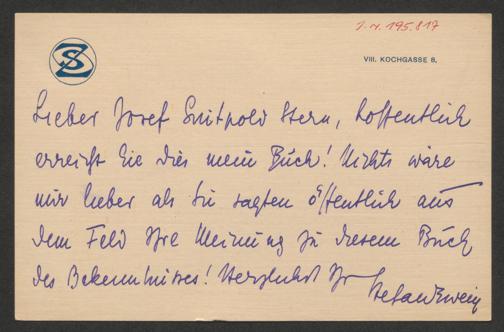 I. N. 195.817
SZ
VIII. KOCHGASSE 8.
Lieber Josef Luitpold Stern, hoffentlich
erreicht Sie dies mein Buch! Nichts wäre
mir lieber als Sie sagten öffentlich aus
dem Feld Ihre Meinung zu diesem Buch
des Bekenntnisses! Herzlichst Ihr Stefan Zweig